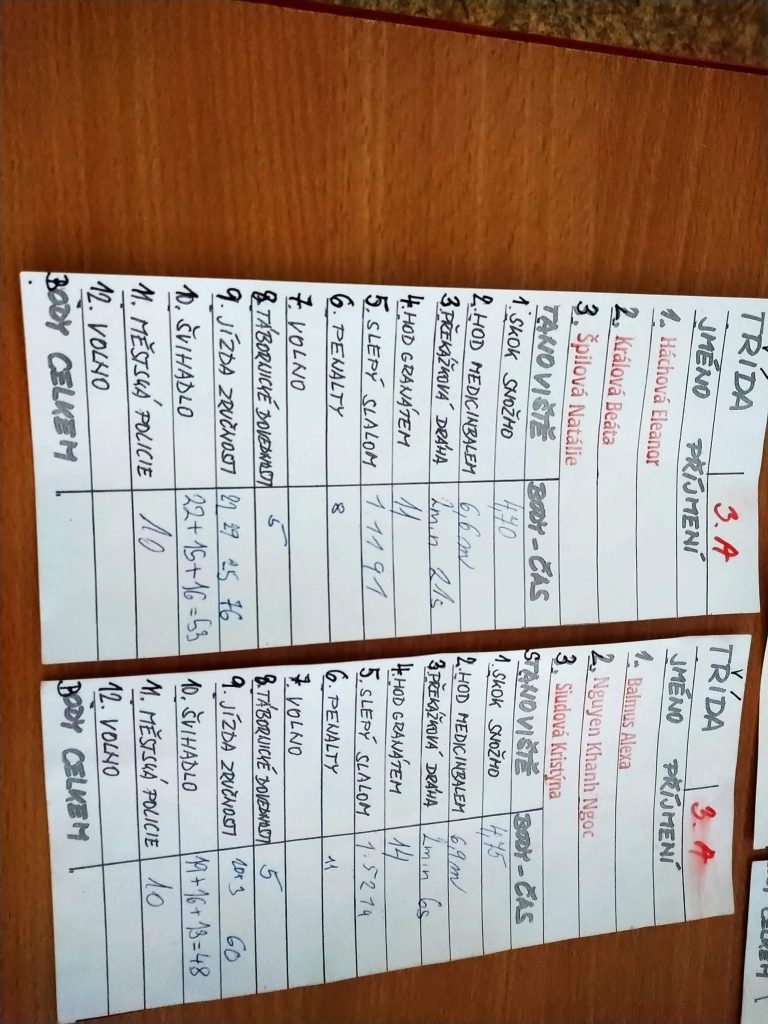 TŘÍDA 3. A
JMÉNO PŘÍJMENÍ
1. Háchová Eleanor
2. Králová Beáta
3. Špilová Natálie
STANOVIŠTĚ BODY - ČAS
1. SKOK SNOŽMO 4,70
2. HOD MEDICINBALEM 6,6 m
3. PŘEKÁŽKOVÁ DRÁHA 2min 21s
4. HOD GRANÁTEM 11
5. SLEPÝ SLALOM
6. PENALTY 8
7. VOLNO
8. TÁBORNICKÉ DOVEDNOSTI 5
9. JÍZDA ZRUČNOSTI 25 76
10. ŠVIHADLO 22+15+16=53
11. MĚSTSKÁ POLICIE 10
12. VOLNO
BODY CELKEM
TŘÍDA 3. A
JMÉNO PŘÍJMENÍ
1. Balmus Alexa
2. Nguyen Khanh Ngoc
3. Siudová Kristýna
STANOVIŠTĚ BODY - ČAS
1. SKOK SNOŽMO 4,75
2. HOD MEDICINBALEM 6,9 m
3. PŘEKÁŽKOVÁ DRÁHA 2min 6s
4. HOD GRANÁTEM 14
5. SLEPÝ SLALOM
6. PENALTY 11
7. VOLNO
8. TÁBORNICKÉ DOVEDNOSTI 5
9. JÍZDA ZRUČNOSTI 60
10. ŠVIHADLO 19+16+13=48
11. MĚSTSKÁ POLICIE 10
12. VOLNO
BODY CELKEM
CELKEM